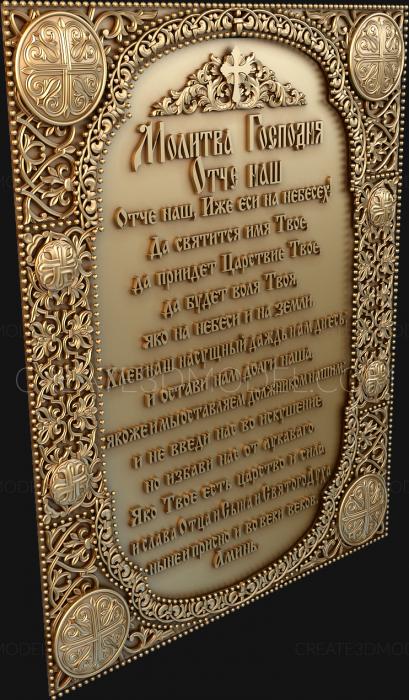 Молитва Господня
Отче наш
Отче наш, Иже еси на небесех!
Да святится имя Твое
да приидет Царствие Твое
да будет воля Твоя
яко на небеси и на земли
Хлеб наш насущный даждь нам днесь;
и остави нам долги наша
якоже и мы оставляем должником нашим
и не введи нас во искушение
но избави нас от лукаваго
Яко Твое есть царство и сила
и слава Отца и Сына и Святого Духа
ныне и присно и во веки веков.
Аминь
CREATE3DMODEL